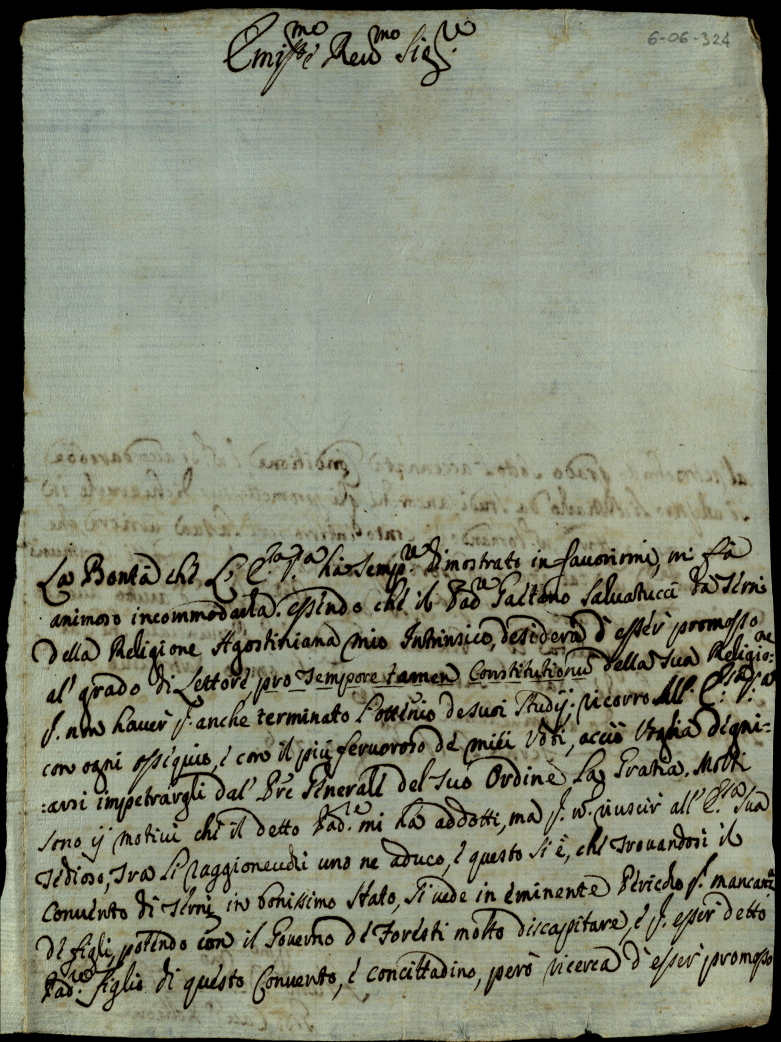 6-06-324
Emi.mo e Reu.mo Sig.re
La Bontà che L'E.za V.a ha semp.re dimostrato in fauorirmi, mi fà
animoso incommodarla. essendo che il Pad.re Gaetano Saluatucci da Terni
della Religione Agostiniana mio Intrinsico, desidera d'esser promosso
al' grado di Lettore, pro tempore tamen Constitutionũ della sua Religio.ne
p. non hauer p. anche terminato l'ottẽnio de suoi Studij; ricorro All' E.za V.a
con ogni ossequio, e con il più feruoroso de miei Voti, acciò Voglia degni=
:arsi impetrargli dal' Pr̃e Generall del suo Ordine La Gratia. Molti
sono ij motiui che il detto Pad.re mi ha addotti, ma p. ñ. riuscir all' E.za Sua
tedioso, tra li raggioneuoli uno ne aduco, e questo si è, che trouandosi il
Conuento di Terni in bonissimo stato, si uede in eminente Pericolo p. mancanza
de figli, potendo con il Gouerno de Foresti molto discapitare, e p. esser detto
Pad.re figlio di questo Conuento, e concittadino, però ricerca d'esser promosso